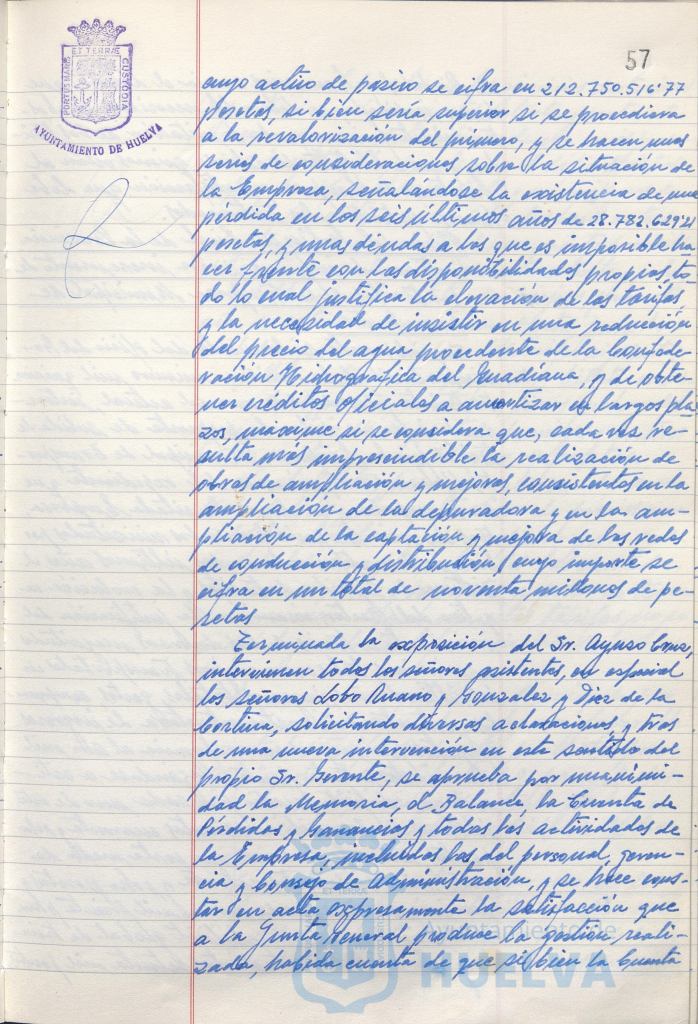 57
PORTUS MARIS
ET TERRAE
CUSTODIA
AYUNTAMIENTO DE HUELVA
cuyo activo de pasivo se cifra en 212.750.516'77
pesetas, si bien sería superior si se procediera
a la revalorización del primero, y se hacen unas
series de consideraciones sobre la situación de
la Empresa, señalándose la existencia de una
pérdida en los seis últimos años de 28.782.629'21
pesetas, y unas deudas a las que es imposible ha-
cer frente con las disponibilidades propias, to-
do lo cual justifica la elevación de las tarifas
y la necesidad de insistir en una reducción
del precio del agua procedente de la Confede-
ración Hidrográfica del Guadiana, y de obte-
ner créditos oficiales a amortizar en largos pla-
zos, máxime si se considera que, cada vez re-
sulta más imprescindible la realización de
obras de ampliación y mejoras, consistentes en la
ampliación de la depuradora y en la am-
pliación de la captación y mejora de las redes
de conducción y distribución cuyo importe se
cifra en un total de noventa millones de pe-
setas
Terminada la exposición del Sr. Ayuso Cruz,
intervienen todos los señores asistentes, en especial
los señores Lobo y González y Díez de la
Cortina, solicitando diversas aclaraciones, y tras
de una nueva intervención en este sentido del
propio Sr. Gerente, se aprueba por unanimi-
dad la Memoria, el Balance, la Cuenta de
Pérdidas y Ganancias y todas las actividades de
la Empresa, incluídas las del personal, geren-
cia y Consejo de Administración, y se hace cons-
tar en acta expresamente la satisfacción que
a la Junta General produce la gestión reali-
zada, habida cuenta de que si bien la Cuenta
Ayuntamiento de
HUELVA